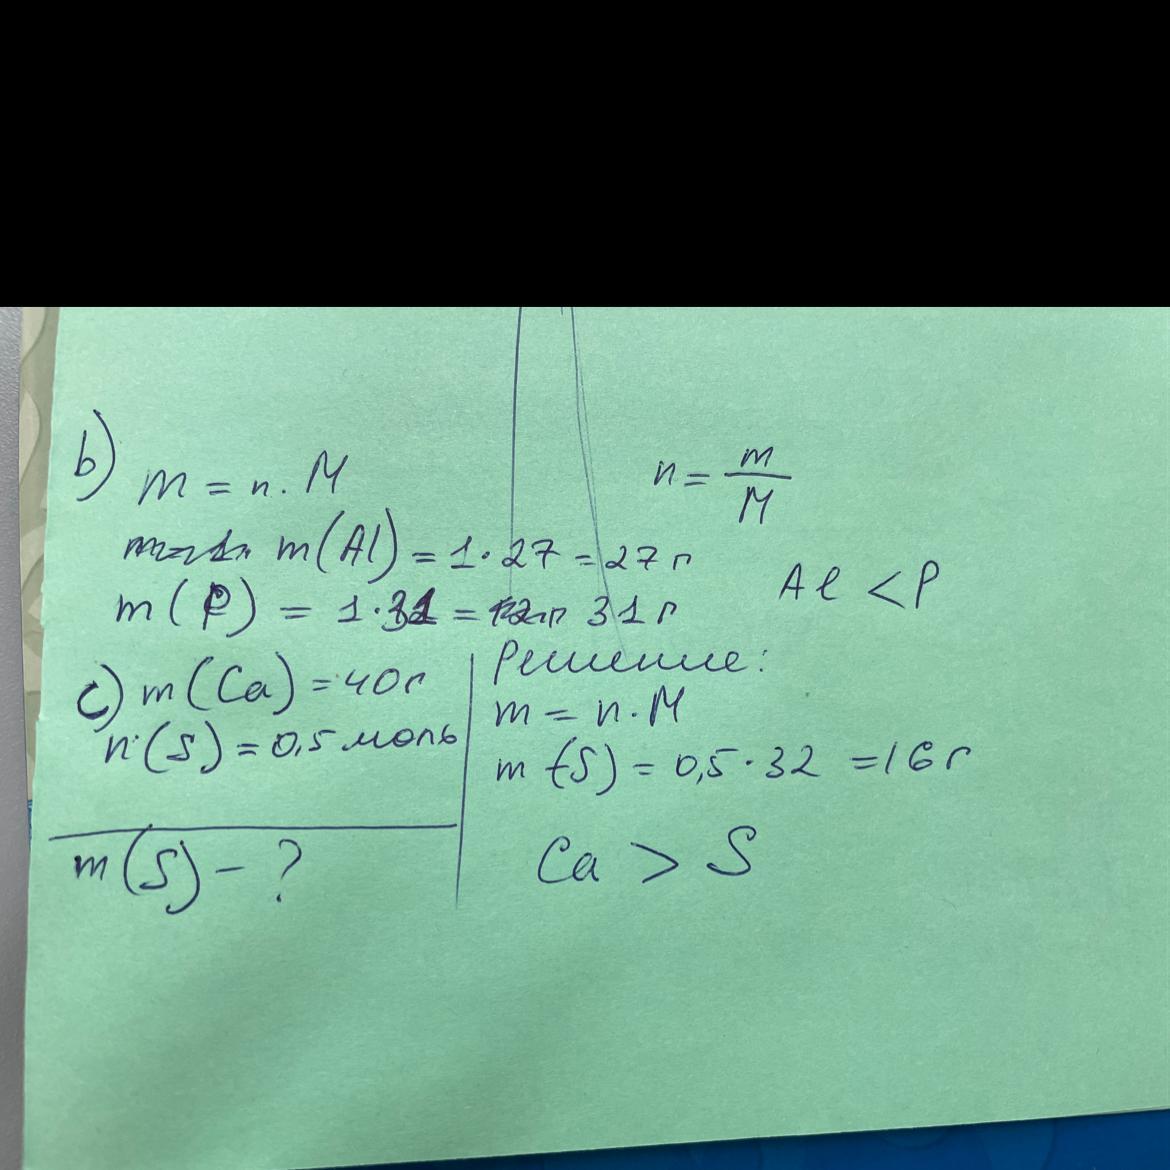 b) m = n · M
n = m / M
m(Al) = 1 · 27 = 27 г
m(P) = 1 · 31 = 31 г
Al < P
c) m(Ca) = 40 г
n(S) = 0,5 моль
m(S) - ?
Решение:
m = n · M
m (S) = 0,5 · 32 = 16 г
Ca > S